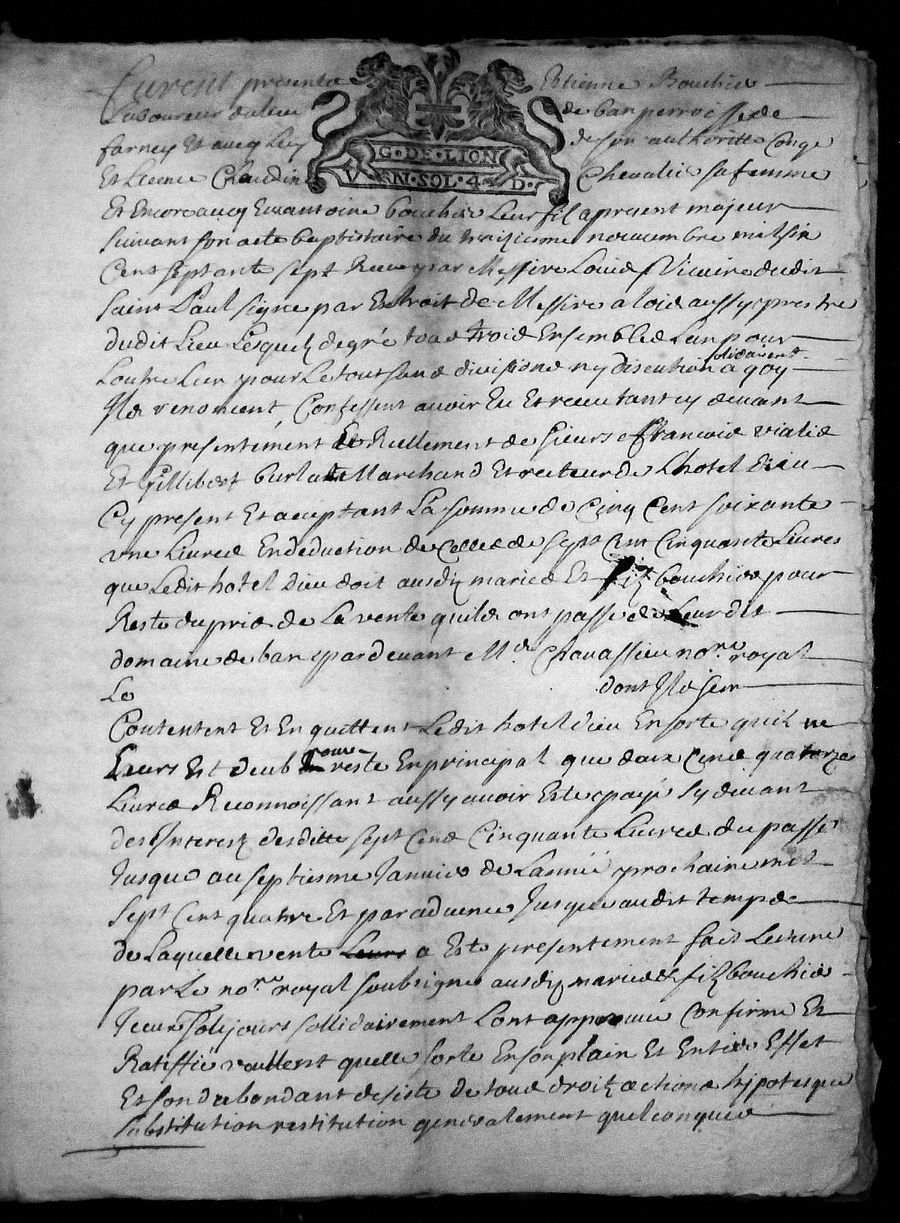 furent presente Estienne Bouchie
Laboureur du lieu de ban perroisse de
farney Et avecq Luy de son authoritte Conge
G·DE·LION
VN·SOL·4·D·
Et Licence Claudine Chevalie sa femme
Et Encore avecq Eux antoine bouchie Leur fil a present majeur
suivant son acte baptistaire du treiziesme novembre mil six
Cent septante sept Receu par Messire Louis Vicaire dudit
saint Paul signe par Extroit de Messire aloid aussy prestre
dudit Lieu Lesquelz de gré tous trois Ensemble Lun pour
solidairemt
Loutre Lun pour Le tout sans divisions ny discution a quoy
Ils renoncent Confessent avoir Eu Et receu tant cy devant
que presentement Et Reellement de sieurs francois vialis
Et Gillibert burlat Marchand Et recteur de Lhotel dieu
Cy present Et aceptant La somme de Cinq Cent soixante
une Livres En deduction de Celles de sept Cent Cinquante Livres
que Ledit hotel Dieu doit ausdiz maries Et filz bouchies pour
Reste du pris de La vente quils ont passe de Leur dit
domaine de ban par devant Me Chavassieu nore royal
Le dont Ils se
Contentent Et En quittent Ledit hotel dieu En sorte quil ne
Leurs Est deub reste En principal que deux Cens quatorze
Livres Reconnoissant aussy avoir Este payé cy devant
des Interestz desditte sept Cens Cinquante Livres du passé
Jusque au septiesme Janvier de Lannée prochaine mil
sept Cent quatre Et par advence Jusque audit temps
de Laquelle vente Leurs a Este presentement fait Lecture
par Le nore royal soubsigne ausdiz maries Et filz bouchie
sollidairement Lont appreuve Confirme Et
Ratiffie veullent quelle sorte En son plain Et Entier Effet
Et son dabondant desiste de tous droitz actions hipoteque
substitution restitution generalement quelconques